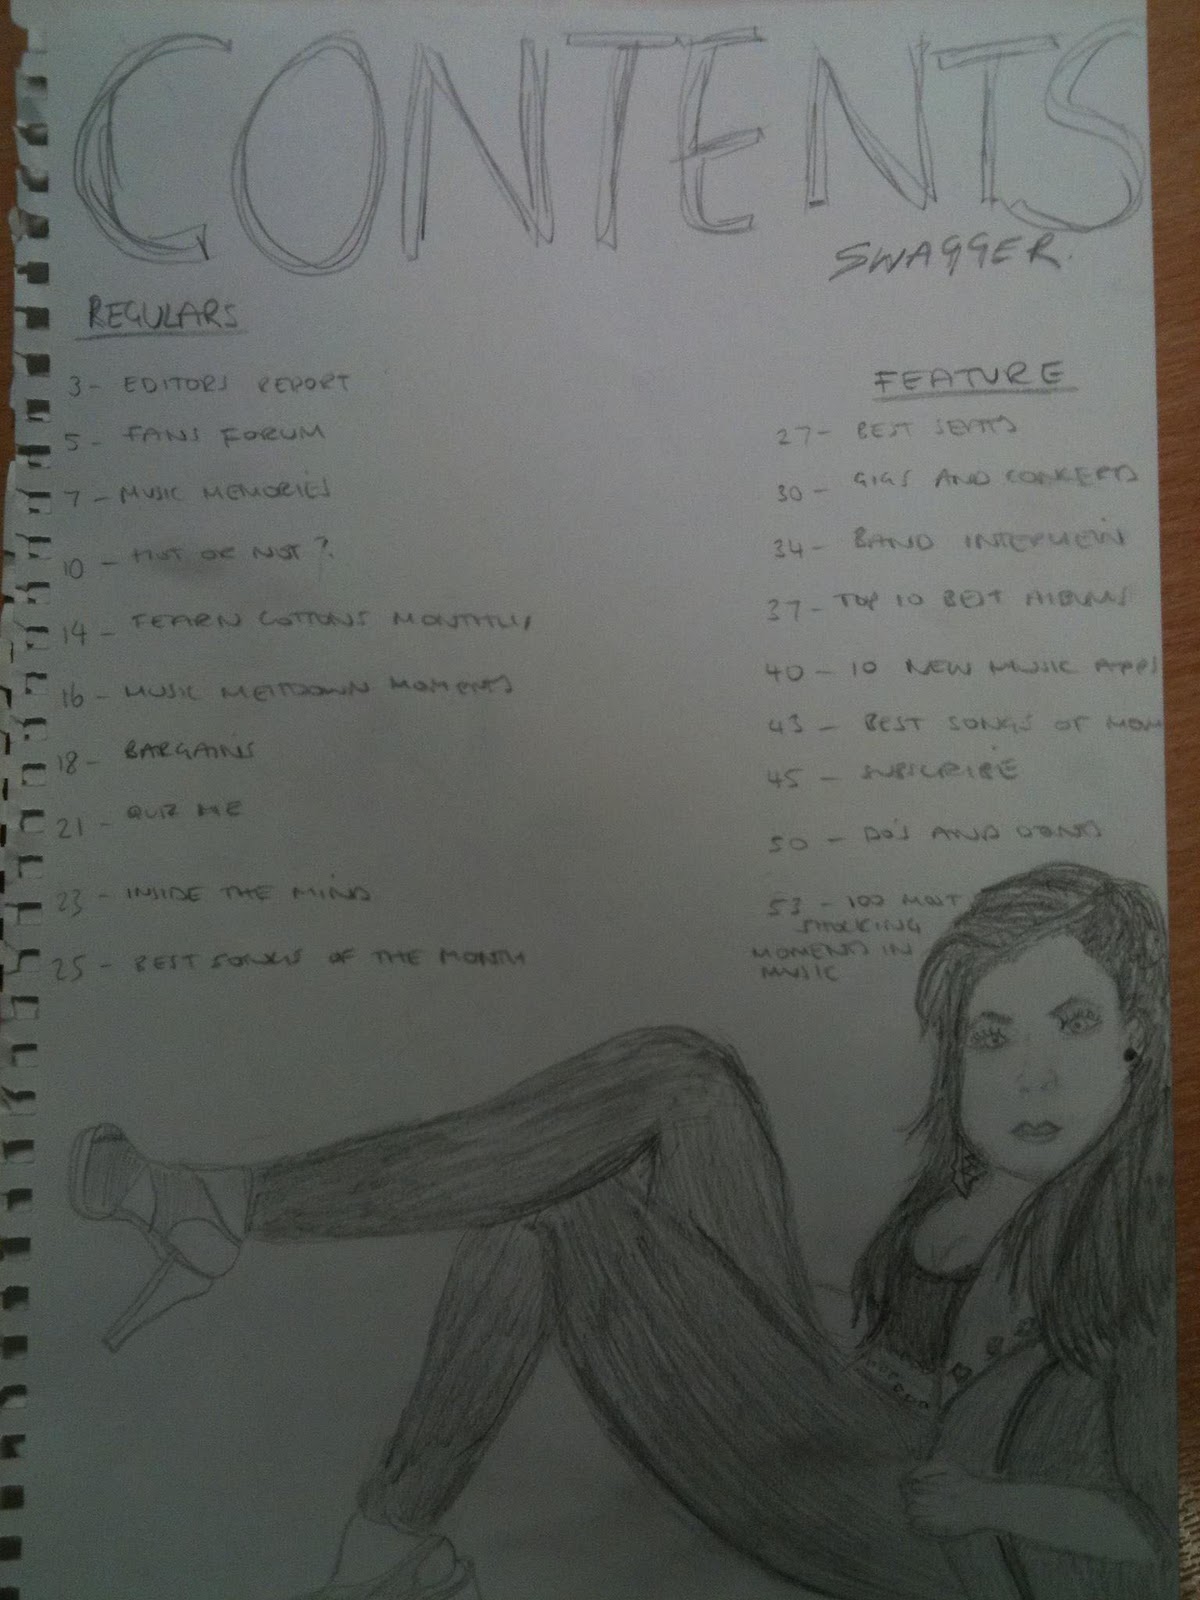 CONTENTS
SWAGGER.
REGULARS
3 - EDITORS REPORT
5 - FANS FORUM
7 - MUSIC MEMORIES
10 - HOT OR NOT?
14 - FEARN COTTONS MONTHLY
16 - MUSIC MELTDOWN MOMENTS
18 - BARGAINS
21 - QUIZ ME
23 - INSIDE THE MIND
25 - BEST SONGS OF THE MONTH
FEATURE
27 - BEST SEATS
30 - GIGS AND CONCERTS
34 - BAND INTERVIEW
37 - TOP 10 BEST ALBUMS
40 - 10 NEW MUSIC APPS
43 - BEST SONGS OF MOM
45 - SUBSCRIBE
50 - DO'S AND DONTS
53 - 100 MOST
SHOCKING
MOMENTS IN
MUSIC